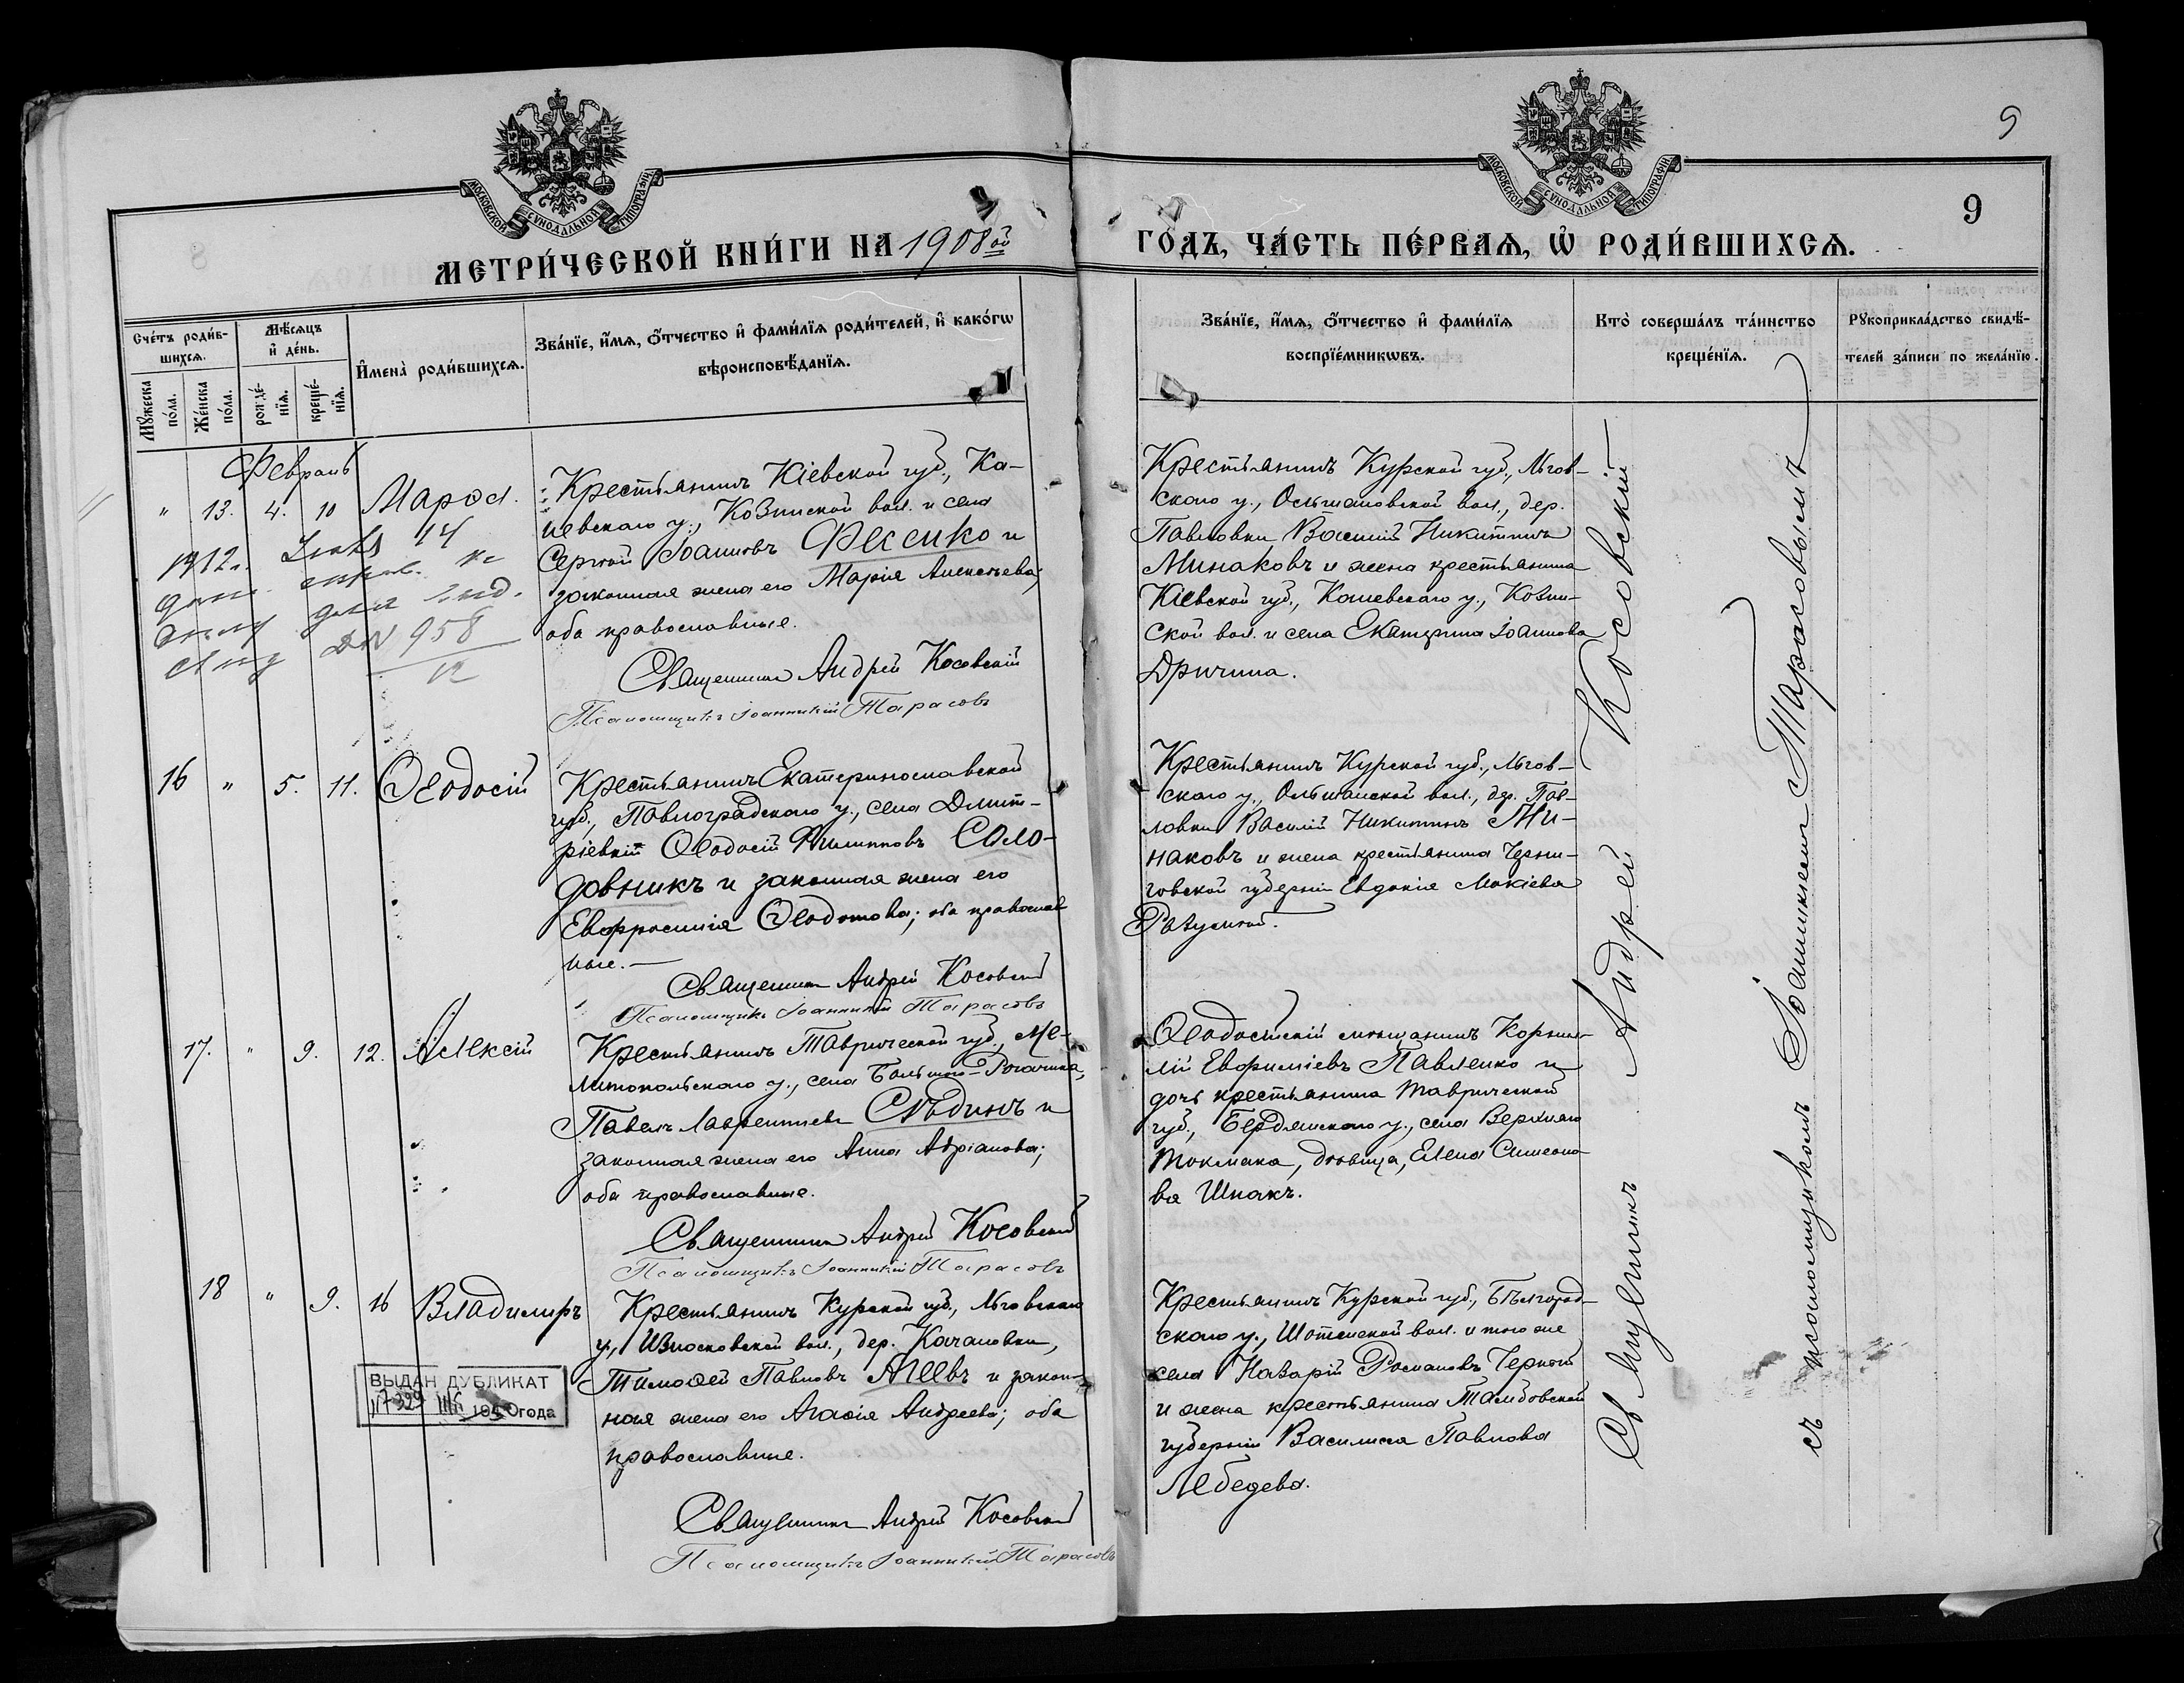 9
9
МОСКОВСКОЙ СѴНОДАЛЬНОЙ ТИПОГРАФІИ
МОСКОВСКОЙ СѴНОДАЛЬНОЙ ТИПОГРАФІИ
МЕТРИ́ЧЕСКОЙ КНИ́ГИ НА 1908 ой
ГО́ДЪ, ЧА́СТЬ ПЕ́РВАѦ, Ѡ҆ РОДИ́ВШИХСѦ.
Сче́тъ роди́в-
шихсѧ.
Мꙋ́жеска по́ла.
Же́нска по́ла.
Мѣ́сѧцъ и҆ де́нь.
рожде́-нїѧ.
креще́-нїѧ.
И҆мена̀ роди́вшихсѧ.
Зва́нїе, и҆́мѧ, ѻ҆́тчество и҆ фами́лїѧ роди́телей, и҆ како́гѡ
вѣроисповѣ́данїѧ.
Зва́нїе, и҆́мѧ, ѻ҆́тчество и҆ фами́лїѧ
воспрїе́мникѡвъ.
Кто̀ соверша́лъ та́инство
креще́нїѧ.
Рꙋкоприкла́дство свидѣ́-
телей за́писи по жела́нїю.
Февраль
" 13. 4. 10
Крестьянинъ Кіевской губ., Ка-
невскаго у., Козинской вол. и села
Сергѣй Іоанновъ Фесенко и
законная жена его Марія Алексѣева;
оба православные.
Священникъ Андрей Косовскій
Псаломщикъ Іоанникій Тарасовъ
1912 г.
958
Крестьянинъ Курской губ., Льгов-
скаго у., вол., дер.
Павловки Василій Никитинъ
Минаковъ и жена крестьянина
Кіевской губ., Каневскаго у., Козин-
ской вол. и села Екатерина Іоаннова
16 " 5. 11. Ѳеодосій
Крестьянинъ Екатеринославской
губ., Павлоградскаго у., села Дмит-
ріевки Ѳеодосій Филипповъ Соло-
довникъ и законная жена его
Евфросинія Ѳеодотова; оба православ
ные.
Священникъ Андрей Косовскій
Псаломщикъ Іоанникій Тарасовъ
Крестьянинъ Курской губ., Льгов-
скаго у., Ольшанской вол., дер. Пав-
ловки Василій Никитинъ Ми-
наковъ и жена крестьянина Черни-
говской губерніи Евдокія Мокіева
17. " 9. 12. Алексій
Крестьянинъ Таврической губ., Ме-
литопольскаго у., села Большого-Рогачика,
Павелъ Лаврентіевъ Слѣдинъ и
законная жена его Анна Адріанова;
оба православные.
Священникъ Андрей Косовскій
Псаломщикъ Іоанникій Тарасовъ
Ѳеодосійскій мѣщанинъ Корни-
лій Евфиміевъ Павленко и
дочь крестьянина Таврической
губ., Бердянскаго у., села Верхняго
Токмака, дѣвица, Елена Симеоно-
ва Шпакъ.
18 " 9. 16 Владимиръ
Крестьянинъ Курской губ., Льговскаго
у., вол., дер. Качановки,
Тимоѳей Павловъ Агеевъ и закон-
ная жена его Агаѳія Андреева; оба
православные.
Священникъ Андрей Косовскій
Псаломщикъ Іоанникій Тарасовъ
ВЫДАН ДУБЛИКАТ
года
Крестьянинъ Курской губ., Бѣлгород-
скаго у., вол. и того же
села Назарій Романовъ Черной
и жена крестьянина Тамбовской
губерніи Василиса Павлова
Лебедева.
Священникъ Андрей Косовскій
съ псаломщикомъ Іоанникіемъ Тарасовымъ